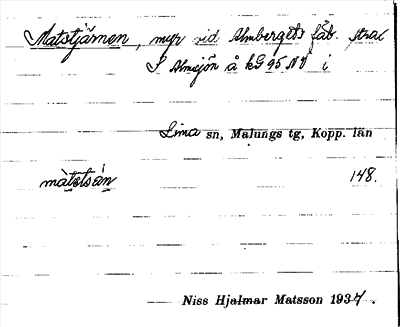 Matstjärnen, myr vid Almbergets fäb. strax
S Almsjön å kG 95 NV i
Lima sn, Malungs tg, Kopp. län
màtstsä̀n 148.
Niss Hjalmar Matsson 1937.